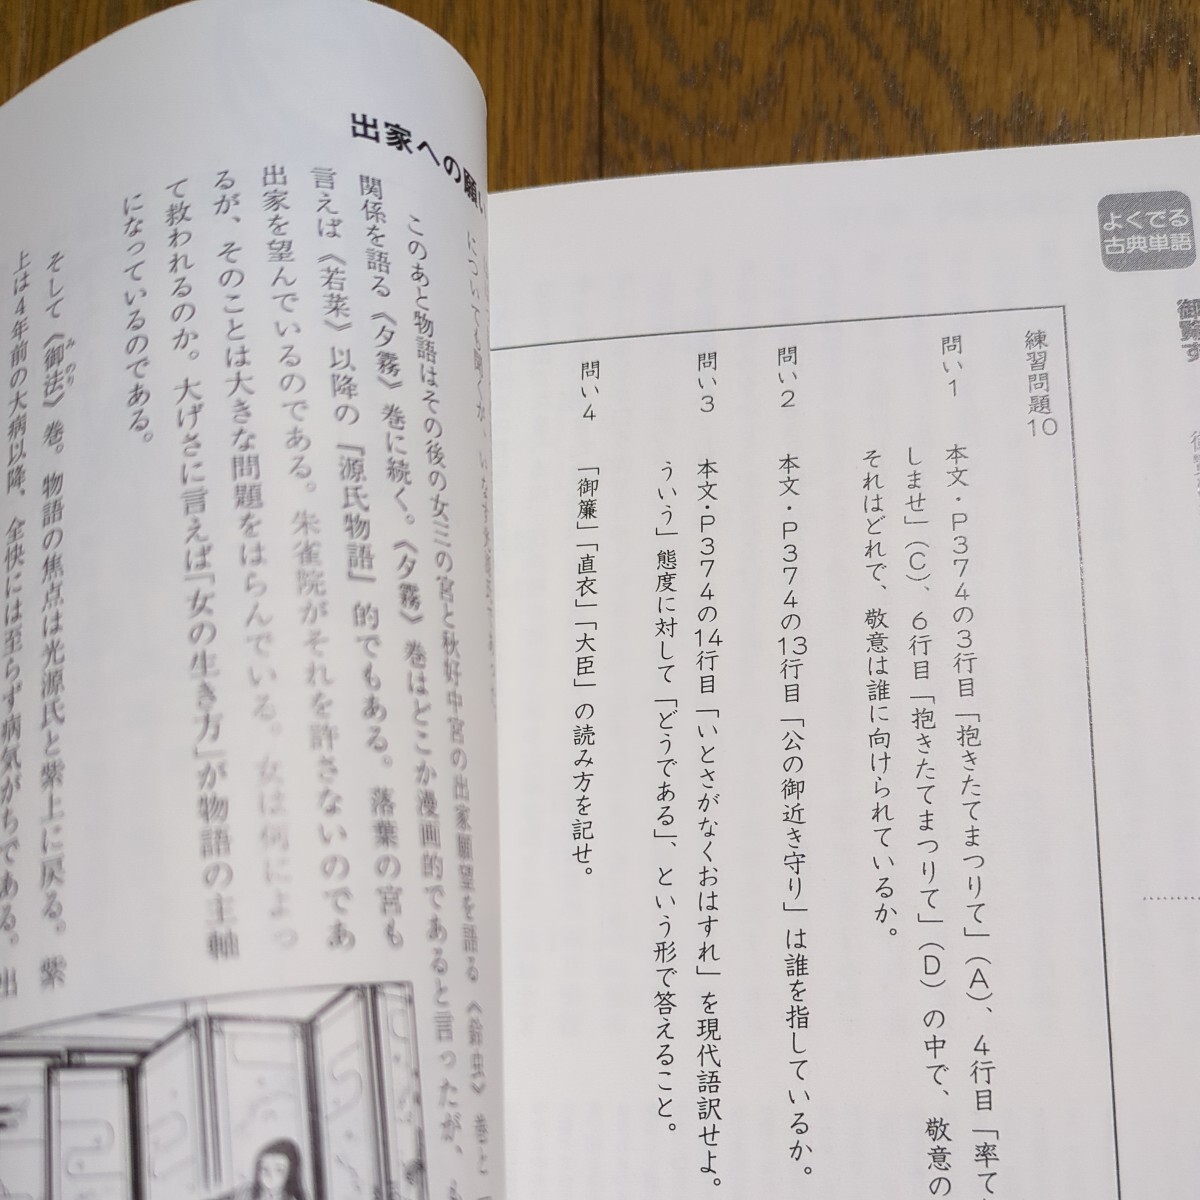 よくでる
古典単語
練習問題10
問い1 本文・P374の3行目「抱きたてまつりて」(A)、4行目「率て
しませ」(C)、6行目「抱きたてまつりて」(D)の中で、敬意の
それはどれで、敬意は誰に向けられているか。
問い2 本文・P374の13行目「公の御近き守り」は誰を指しているか。
問い3 本文・P374の14行目「いとさがなくおはすれ」を現代語訳せよ。
ういう」態度に対して「どうである」、という形で答えること。
問い4 「御簾」「直衣」「大臣」の読み方を記せ。
出家への願い
このあと物語はその後の女三の宮と秋好中宮の出家願望を語る《鈴虫》巻と
関係を語る《夕霧》巻に続く。《夕霧》巻はどこか漫画的であると言ったが、
言えば《若菜》以降の『源氏物語』的でもある。落葉の宮も
出家を望んでいるのである。朱雀院がそれを許さないのであ
るが、そのことは大きな問題をはらんでいる。女は何によっ
て救われるのか。大げさに言えば「女の生き方」が物語の主軸
になっているのである。
そして《御法》巻。物語の焦点は光源氏と紫上に戻る。紫
みのり
上は4年前の大病以降、全快には至らず病気がちである。出